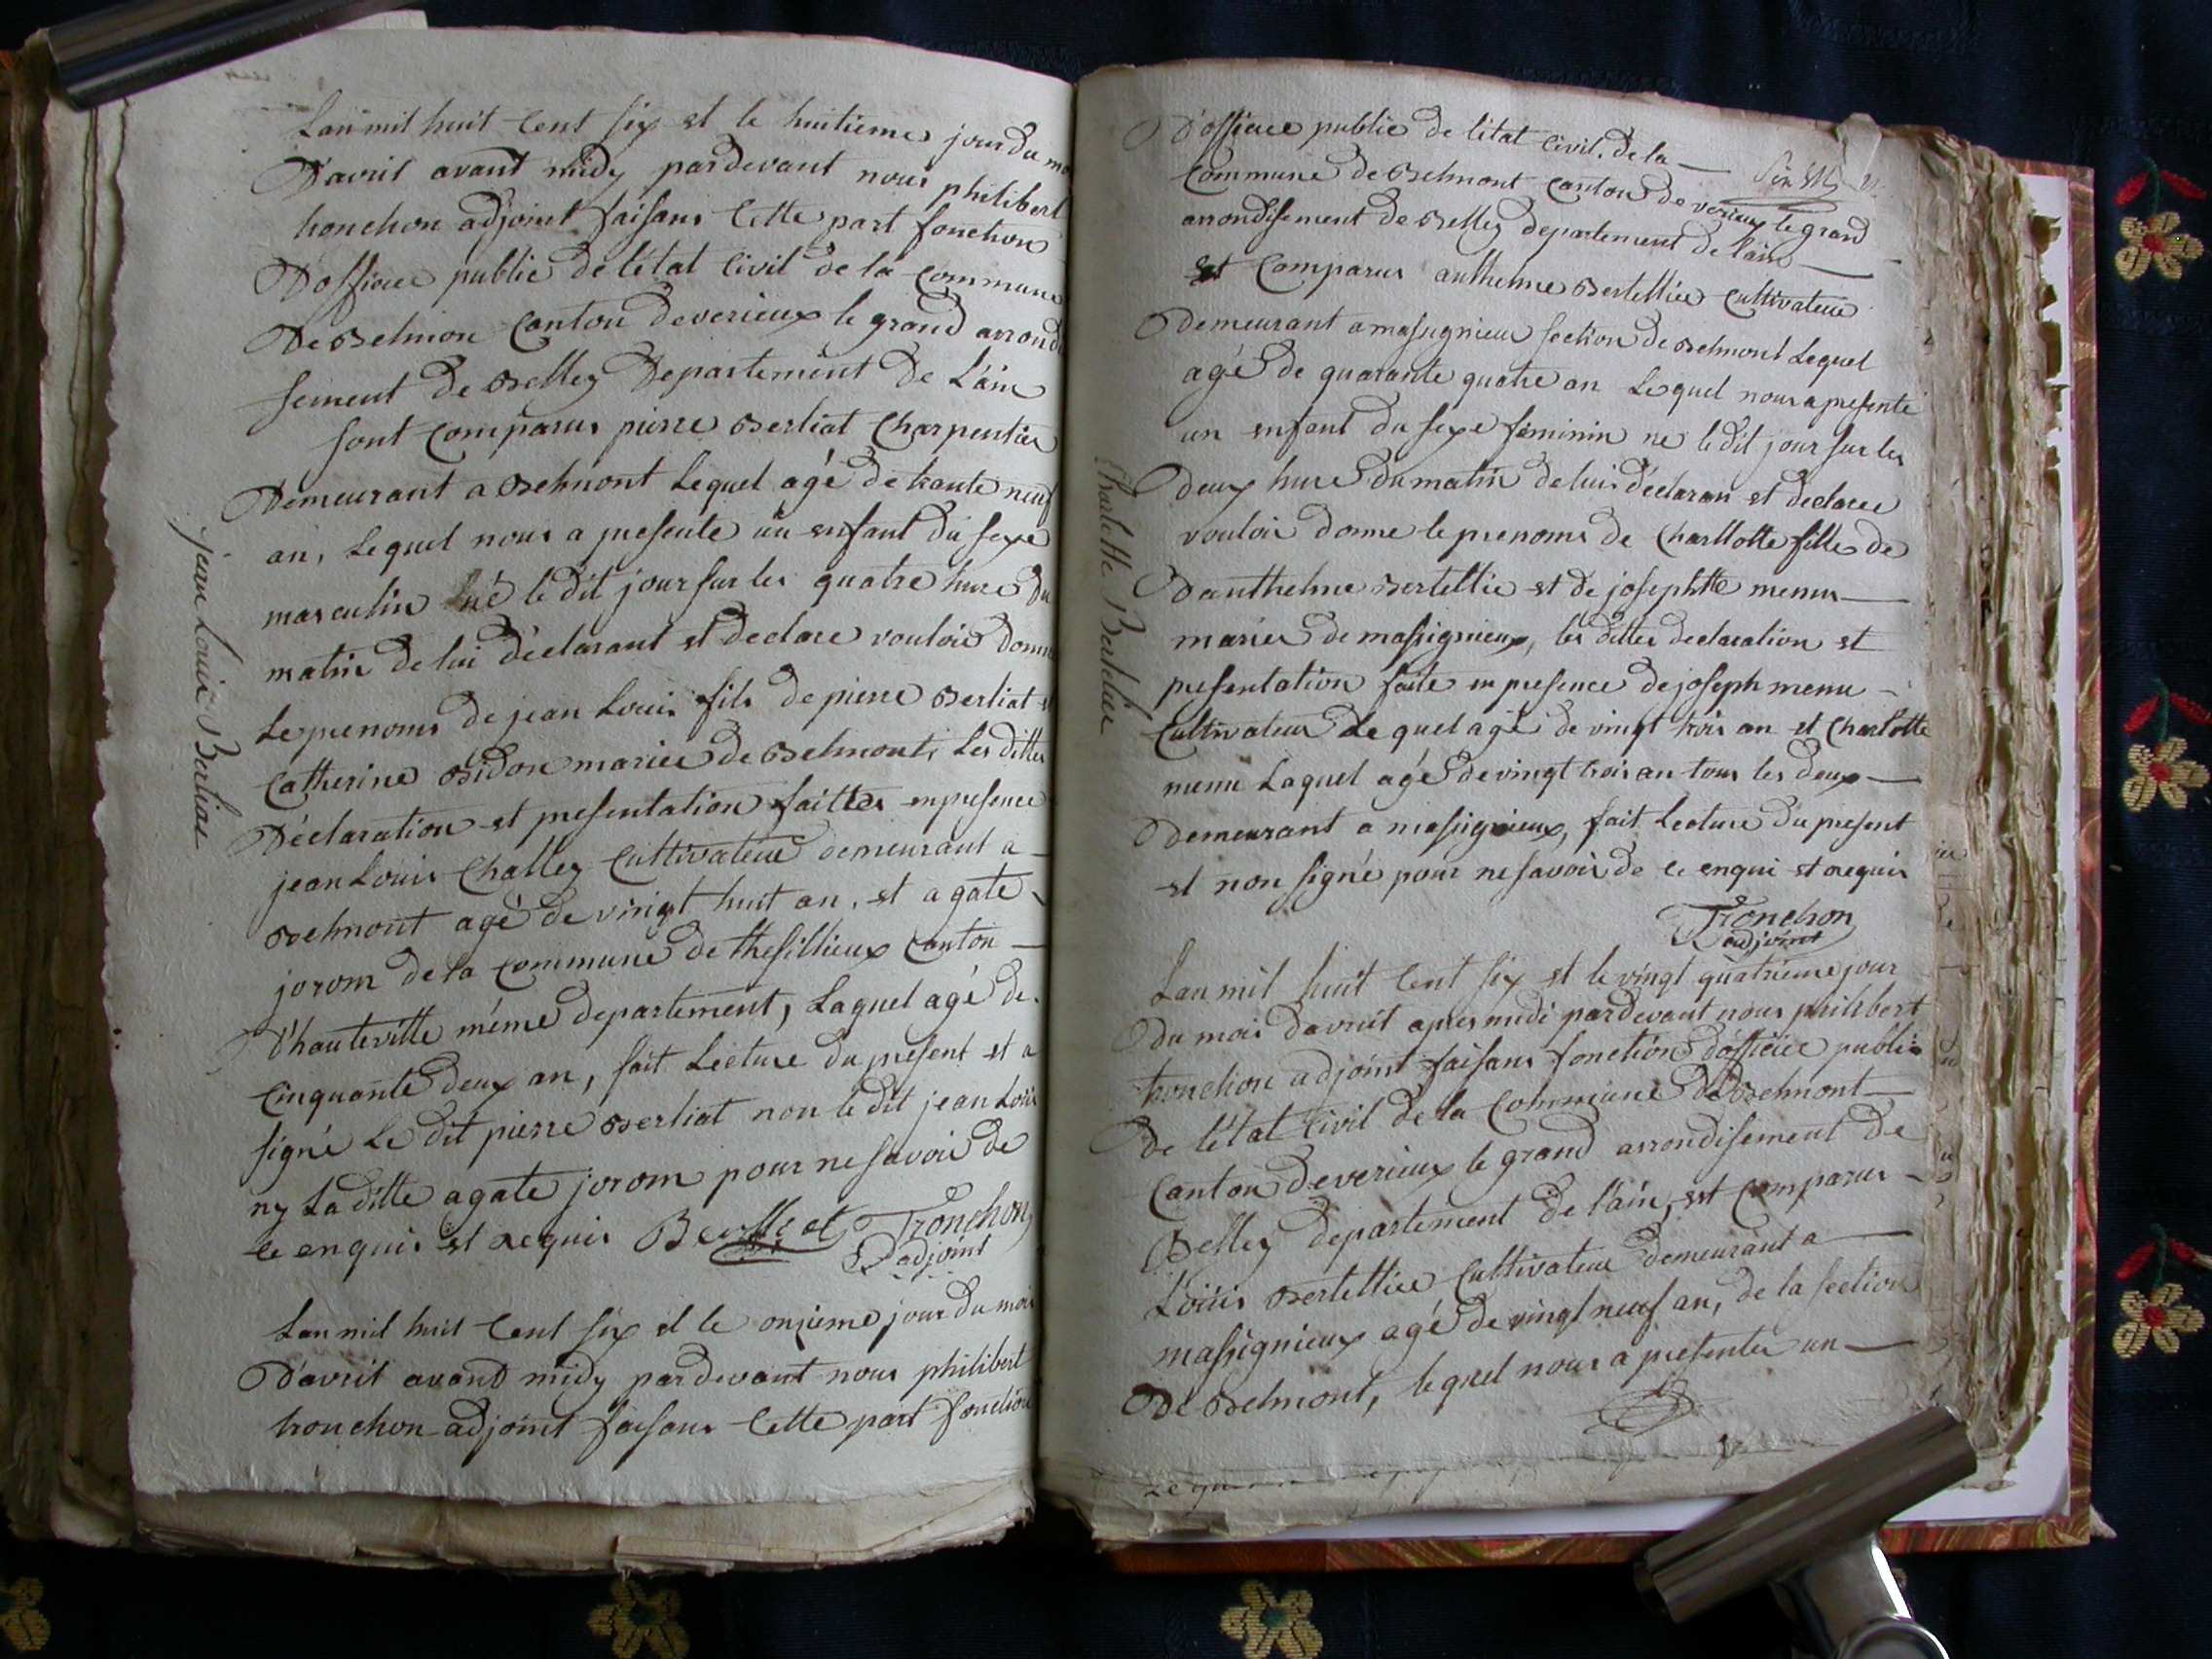 Lan mil huit Cent six et le huitieme jour du mo
Davril avant midy pardevant nous philibert
tronchon adjoint faisans Cette part fonction
D'officier public de l'état Civil de la Commune
De Belmon Canton de verieux le grand arrondi
sement de Belley Departement de L'ain
sont Comparus pierre Berliat Charpentier
Demeurant a Belmont Lequel agé de trante neuf
an, Lequel nous a presente un enfant du sexe
masculin né le dit jour sur les quatre hure du
matin de lui déclarant et declare vouloir donne
Le prenoms de jean Louis fils de pierre Berliat et
Catherine Bidon mariée de Belmont, Les dittes
Déclaration et presentation faittes en presence
jean Louis Challey Cultivateur demeurant a
Belmont agé de vingt huit an, et agate
jorom de la Commune de thesillieux Canton
D'hauteville méme departement, Laquel agé de
Cinquante deux an, fait Lecture du present et a
signé Le dit pierre Berliat non le dit jean Louis
ny La ditte agate jorom pour ne savoir de
ce enquis et requis Tronchon
adjoint
Lan mil huit Cent six et le onzieme jour du mois
D'avril avant midy pardevant nous philibert
tronchon adjoint faisans Cette part fonction
jean Louis Berliat
D'officier public de l'état Civil de la
Commune de Belmont Canton de verieux le grand
arrondisement de Belley departement de l'ain
est Comparus anthelme Bertellier Cultivateur
Demeurant a massignieux section de Belmont Lequel
agé de quarante quatre an Lequel nous a presenté
un enfant du sexe féminin ne le dit jour sur les
Deux hure du matin de lui déclaran et declare
vouloir donne le prenoms de Charllotte fille de
D'anthelme Bertellie et de josephtte menu
mariés de massignieux, les dittes declaration et
presentation faite en presence de joseph menu
Cultivateur Lequel agé de vingt trois an et Charlotte
menu Laquel agé de vingt trois an tous les deux
Demeurant a massignieux, fait Lecture du present
et non signé pour ne savoir de ce enqui et requis
Tronchon
adjoint
Lan mil huit Cent six et le vingt quatrieme jour
Du mois davril apres midi pardevant nous philibert
tronchon adjoint faisans fonction d'officier public
De l'état Civil de la Commune de Belmont
Canton de verieux le grand arrondisement de
Belley departement de l'ain, est Comparus
Louis Bertellier Cultivateur demeurant a
massignieux agé de vingt neuf an, de la section
De Belmont, lequel nous a presenter un